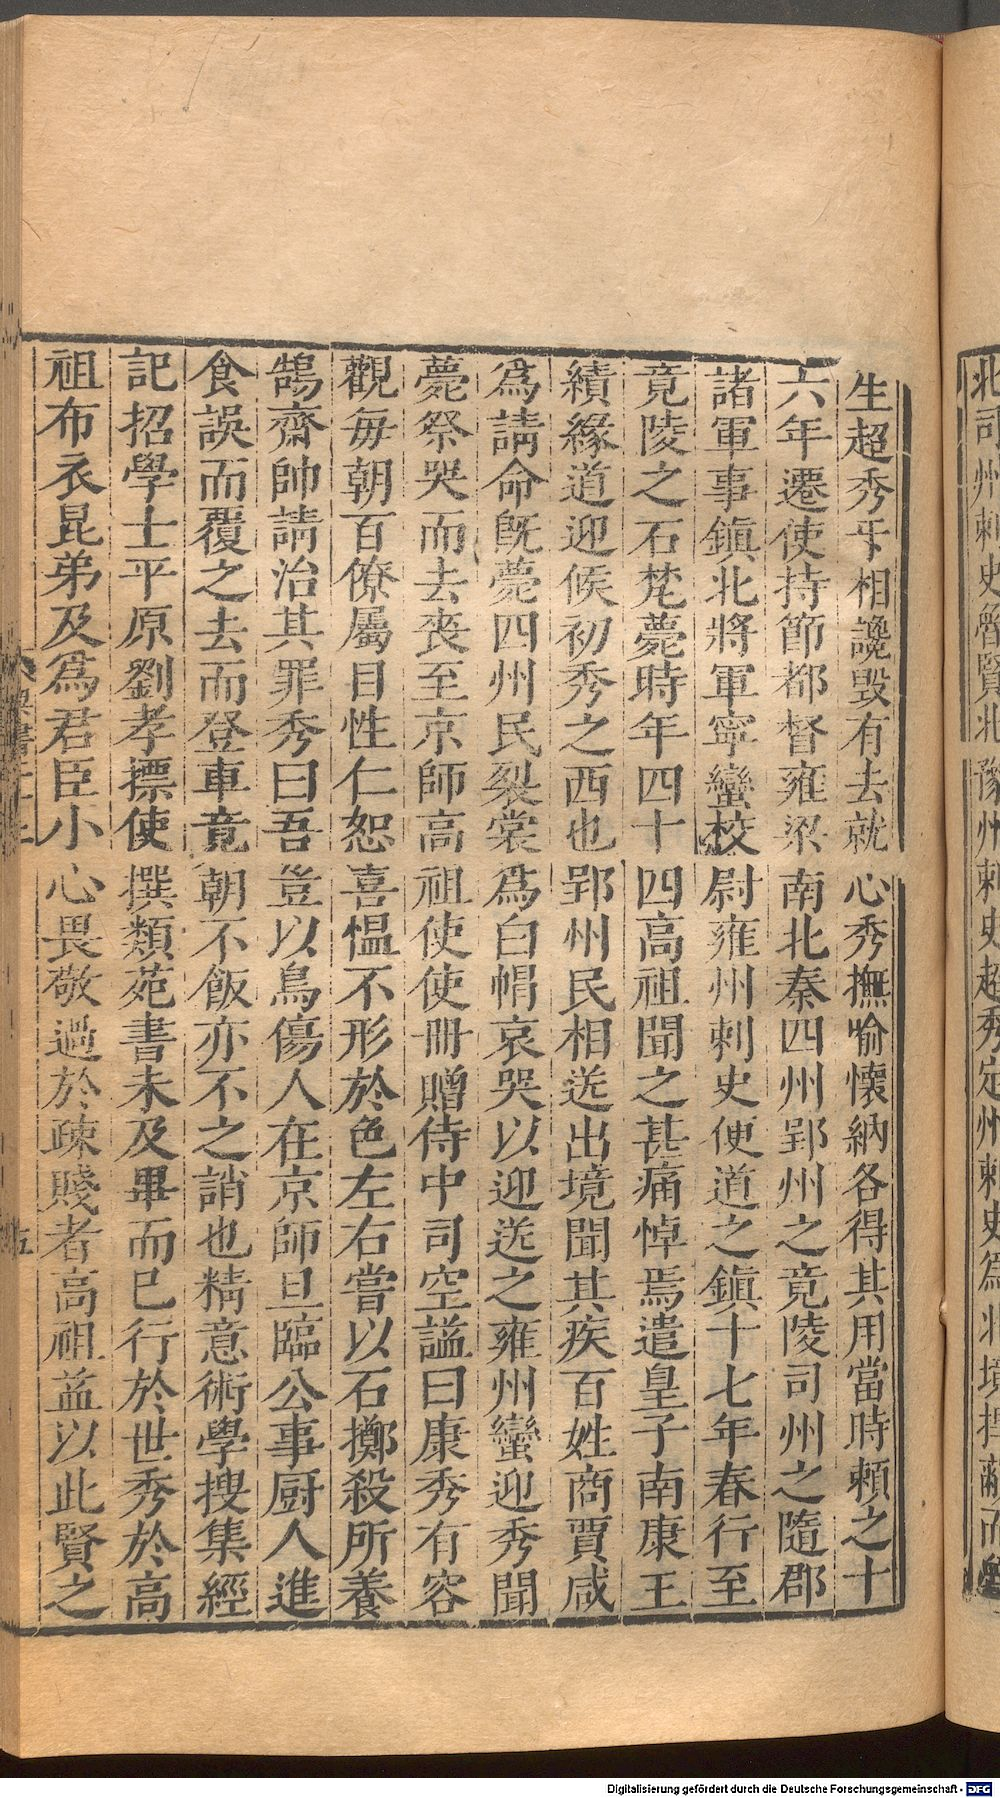 北司州刺史魯賢北豫州刺史超秀定州刺史爲北境捍蔽而魯
生超秀㸦相讒毀有去就心秀撫喻懷納各得其用當時賴之十
六年遷使持節都督雍梁南北秦四州郢州之竟陵司州之隨郡
諸軍事鎮北將軍寧蠻校尉雍州刺史便道之鎮十七年春行至
竟陵之石梵薨時年四十四高祖聞之甚痛悼焉遣皇子南康王
績緣道迎候初秀之西也郢州民相送出境聞其疾百姓商賈咸
爲請命旣薨四州民裂裳爲白帽哀哭以迎送之雍州蠻迎秀聞
薨祭哭而去喪至京師高祖使使冊贈侍中司空謚曰康秀有容
觀每朝百僚屬目性仁恕喜愠不形於色左右嘗以石擲殺所養
鵠齋帥請治其罪秀曰吾豈以鳥傷人在京師旦臨公事厨人進
食誤而覆之去而登車竟朝不飯亦不之誚也精意術學搜集經
記招學士平原劉孝摽使撰類苑書未及畢而已行於世秀於高
祖布衣昆弟及爲君臣小心畏敬過於疎賤者高祖益以此賢之
Digitalisierung gefördert durch die Deutsche Forschungsgemeinschaft - DFG